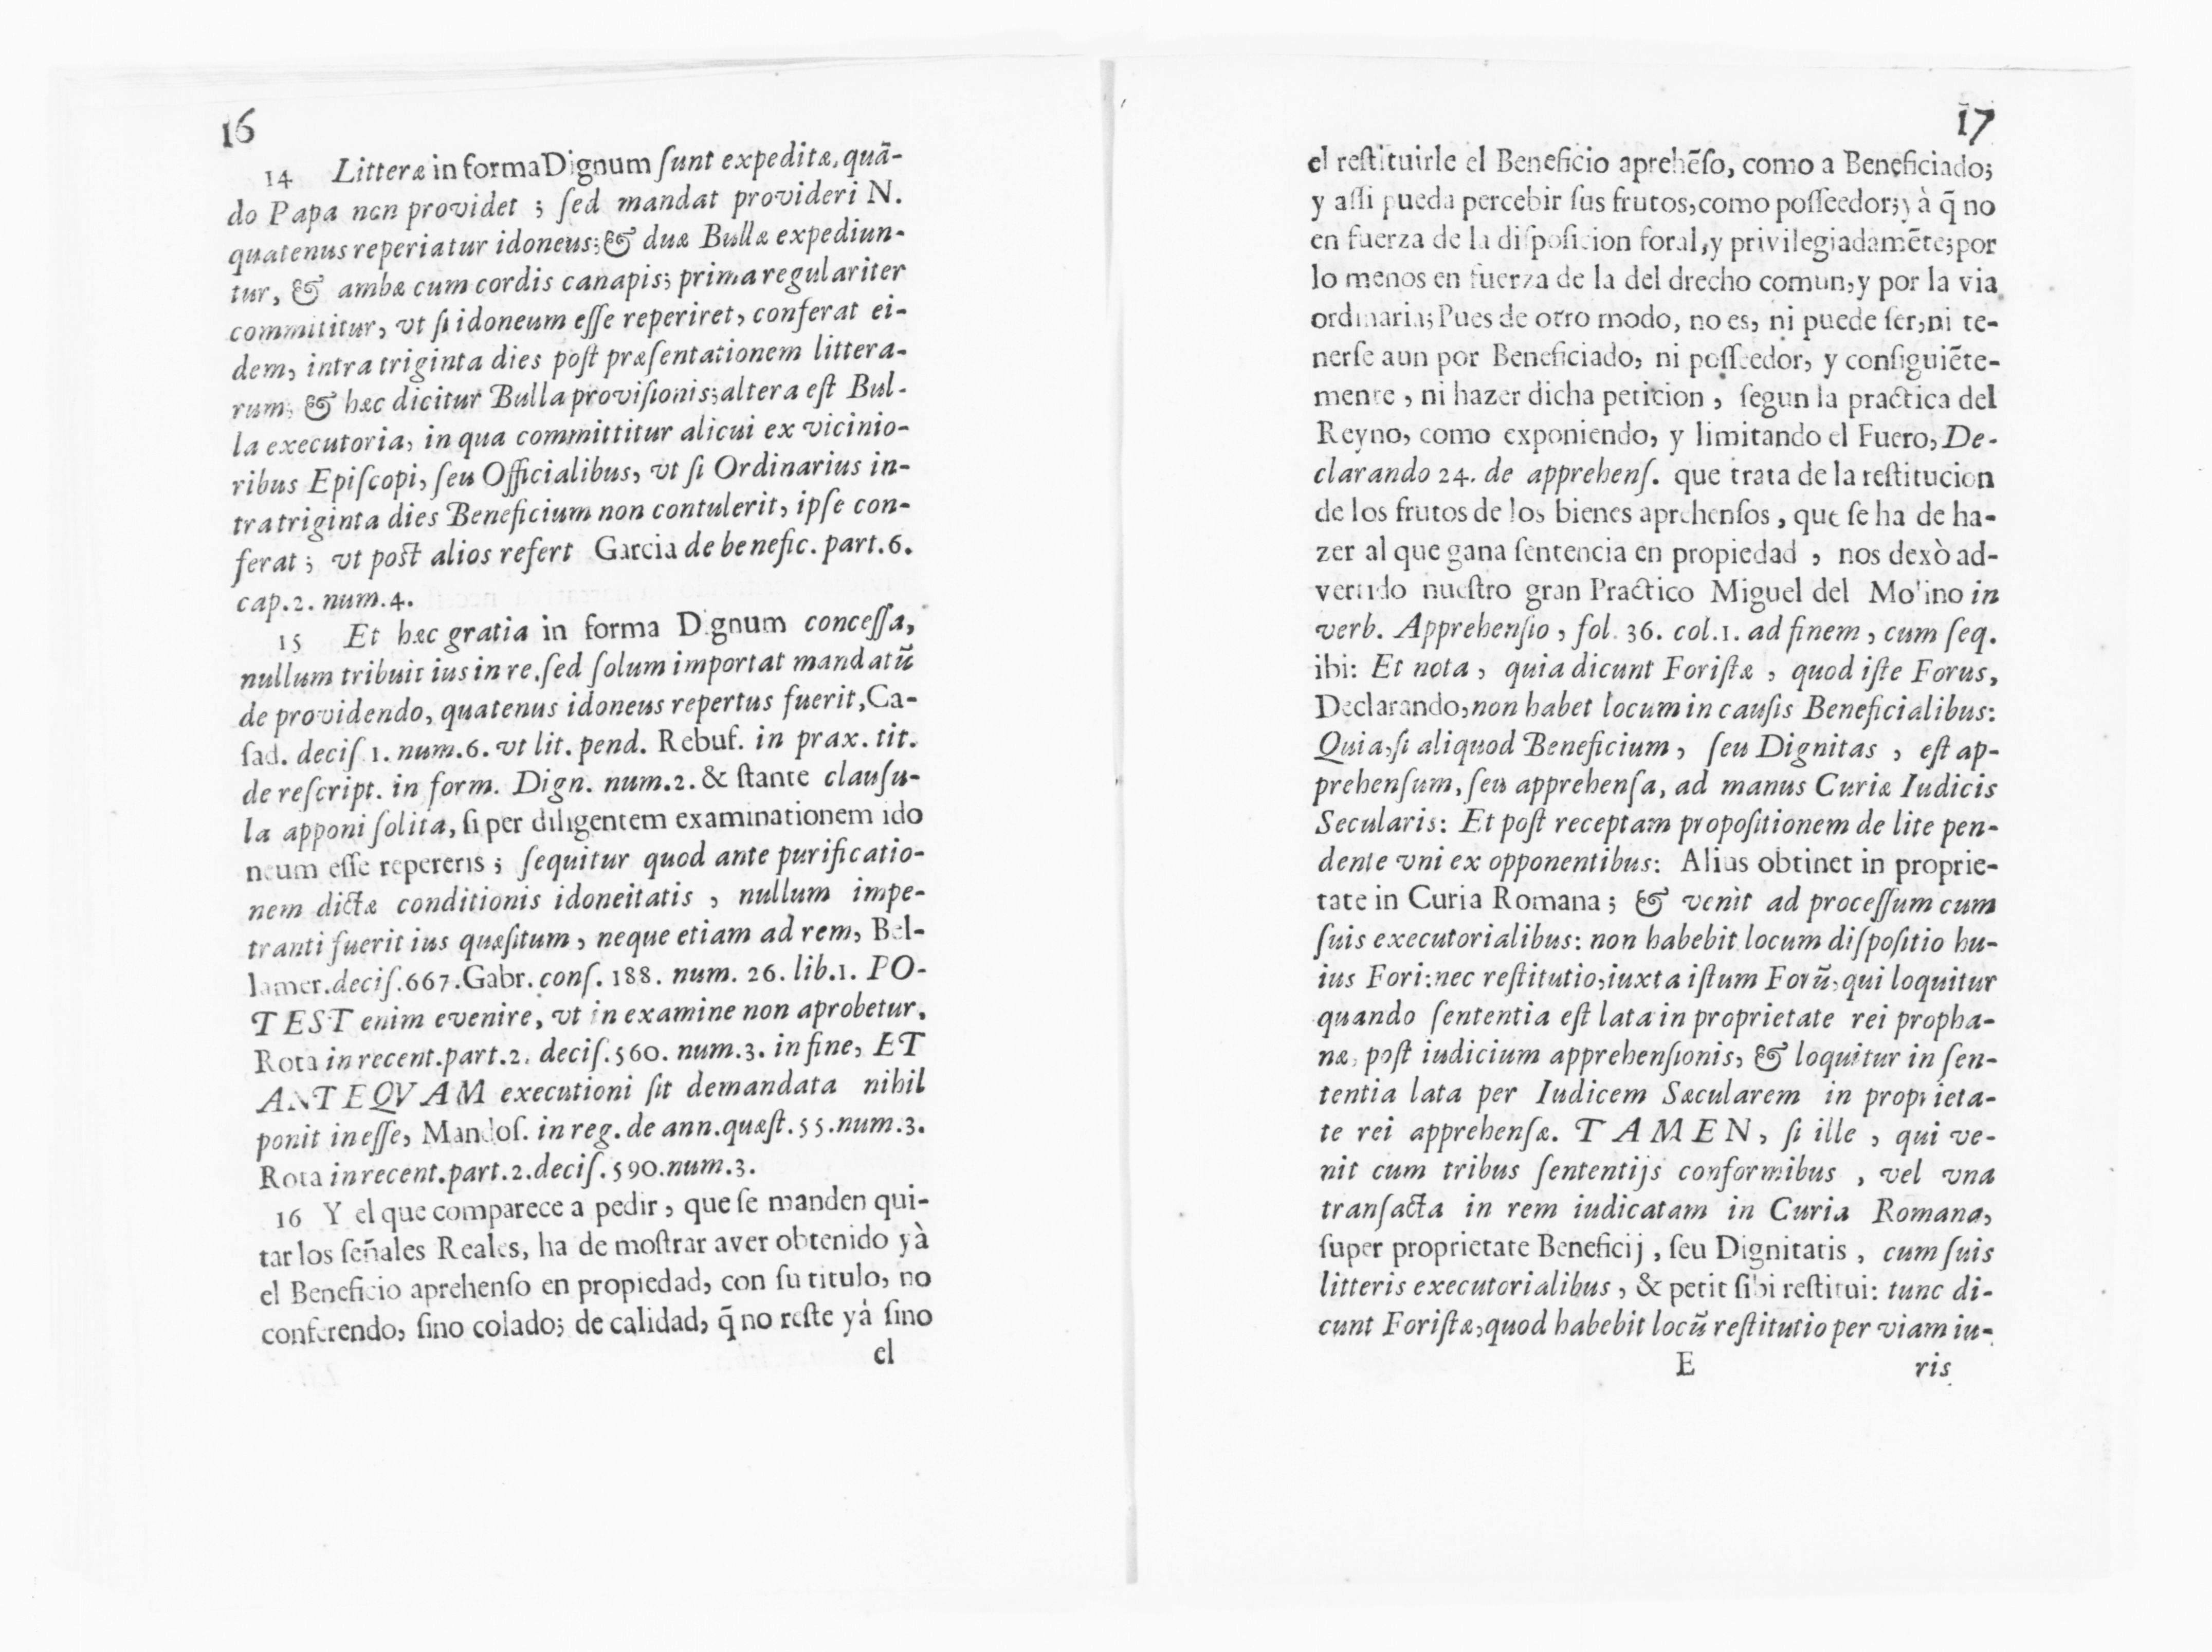 16
14 Litteræ in forma Dignum ſunt expeditæ, quã-
do Papa non providet ; ſed mandat provideri N.
quatenus reperiatur idoneus; & duæ Bullæ expediun-
tur, & ambæ cum cordis canapis; prima regulariter
committitur, vt ſi idoneum eſſe reperiret, conferat ei-
dem, intra triginta dies poſt præſentationem littera-
rum; & hæc dicitur Bulla proviſionis; altera eſt Bul-
la executoria, in qua committitur alicui ex vicinio-
ribus Epiſcopi, ſeu Officialibus, vt ſi Ordinarius in-
tra triginta dies Beneficium non contulerit, ipſe con-
ferat ; vt poſt alios refert Garcia de benefic. part.6.
cap.2. num.4.
15 Et hæc gratia in forma Dignum conceſſa,
nullum tribuit ius in re, ſed ſolum importat mandatũ
de providendo, quatenus idoneus repertus fuerit, Ca-
ſad. deciſ. 1. num.6. vt lit. pend. Rebuf. in prax. tit.
de reſcript. in form. Dign. num.2. & ſtante clauſu-
la apponi ſolita, ſi per diligentem examinationem ido
neum eſſe repereris ; ſequitur quod ante purificatio-
nem dictæ conditionis idoneitatis , nullum impe-
tranti fuerit ius quæſitum , neque etiam ad rem, Bel-
lamer. deciſ. 667. Gabr. conſ. 188. num. 26. lib.1. PO-
TEST enim evenire, vt in examine non aprobetur,
Rota in recent. part.2. deciſ. 560. num.3. in fine, ET
ANTEQVAM executioni ſit demandata nihil
ponit in eſſe, Mandoſ. in reg. de ann. quæſt. 55. num.3.
Rota in recent. part.2. deciſ. 590. num.3.
16 Y el que comparece a pedir , que ſe manden qui-
tar los ſeñales Reales, ha de moſtrar aver obtenido yà
el Beneficio aprehenſo en propiedad, con ſu titulo, no
conferendo, ſino colado; de calidad, q̃ no reſte yà ſino
el
17
el reſtituirle el Beneficio aprehẽſo, como a Beneficiado;
y aſſi pueda percebir ſus frutos, como poſſeedor; y à q̃ no
en fuerza de la diſpoſicion foral, y privilegiadamẽte; por
lo menos en fuerza de la del drecho comun, y por la via
ordinaria; Pues de otro modo, no es, ni puede ſer, ni te-
nerſe aun por Beneficiado, ni poſſeedor, y conſiguiẽte-
mente , ni hazer dicha peticion , ſegun la practica del
Reyno, como exponiendo, y limitando el Fuero, De-
clarando 24. de apprehenſ. que trata de la reſtitucion
de los frutos de los bienes aprehenſos , que ſe ha de ha-
zer al que gana ſentencia en propiedad , nos dexò ad-
vertido nueſtro gran Practico Miguel del Molino in
verb. Apprehenſio , fol. 36. col.1. ad finem , cum ſeq.
ibi: Et nota , quia dicunt Foriſtæ , quod iſte Forus,
Declarando, non habet locum in cauſis Beneficialibus:
Quia, ſi aliquod Beneficium , ſeu Dignitas , eſt ap-
prehenſum, ſeu apprehenſa, ad manus Curiæ Iudicis
Secularis: Et poſt receptam propoſitionem de lite pen-
dente vni ex opponentibus: Alius obtinet in proprie-
tate in Curia Romana ; & venit ad proceſſum cum
ſuis executorialibus: non habebit locum diſpoſitio hu-
ius Fori: nec reſtitutio, iuxta iſtum Forũ, qui loquitur
quando ſententia eſt lata in proprietate rei propha-
næ, poſt iudicium apprehenſionis, & loquitur in ſen-
tentia lata per Iudicem Sæcularem in proprieta-
te rei apprehenſæ. TAMEN , ſi ille , qui ve-
nit cum tribus ſententijs conformibus , vel vna
tranſacta in rem iudicatam in Curia Romana,
ſuper proprietate Beneficij , ſeu Dignitatis , cum ſuis
litteris executorialibus , & petit ſibi reſtitui: tunc di-
cunt Foriſtæ, quod habebit locũ reſtitutio per viam iu-
E ris